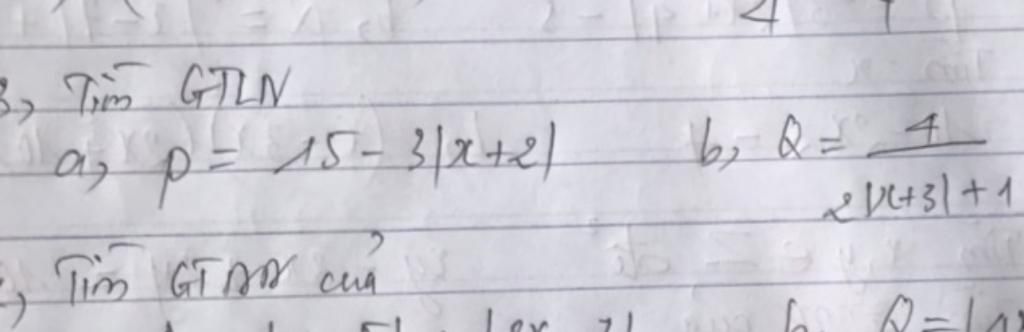 3, Tìm GTLN
a, P = 15 - 3|x+2| b, Q = 4 / 2|x+3| + 1
Tìm GTNN của